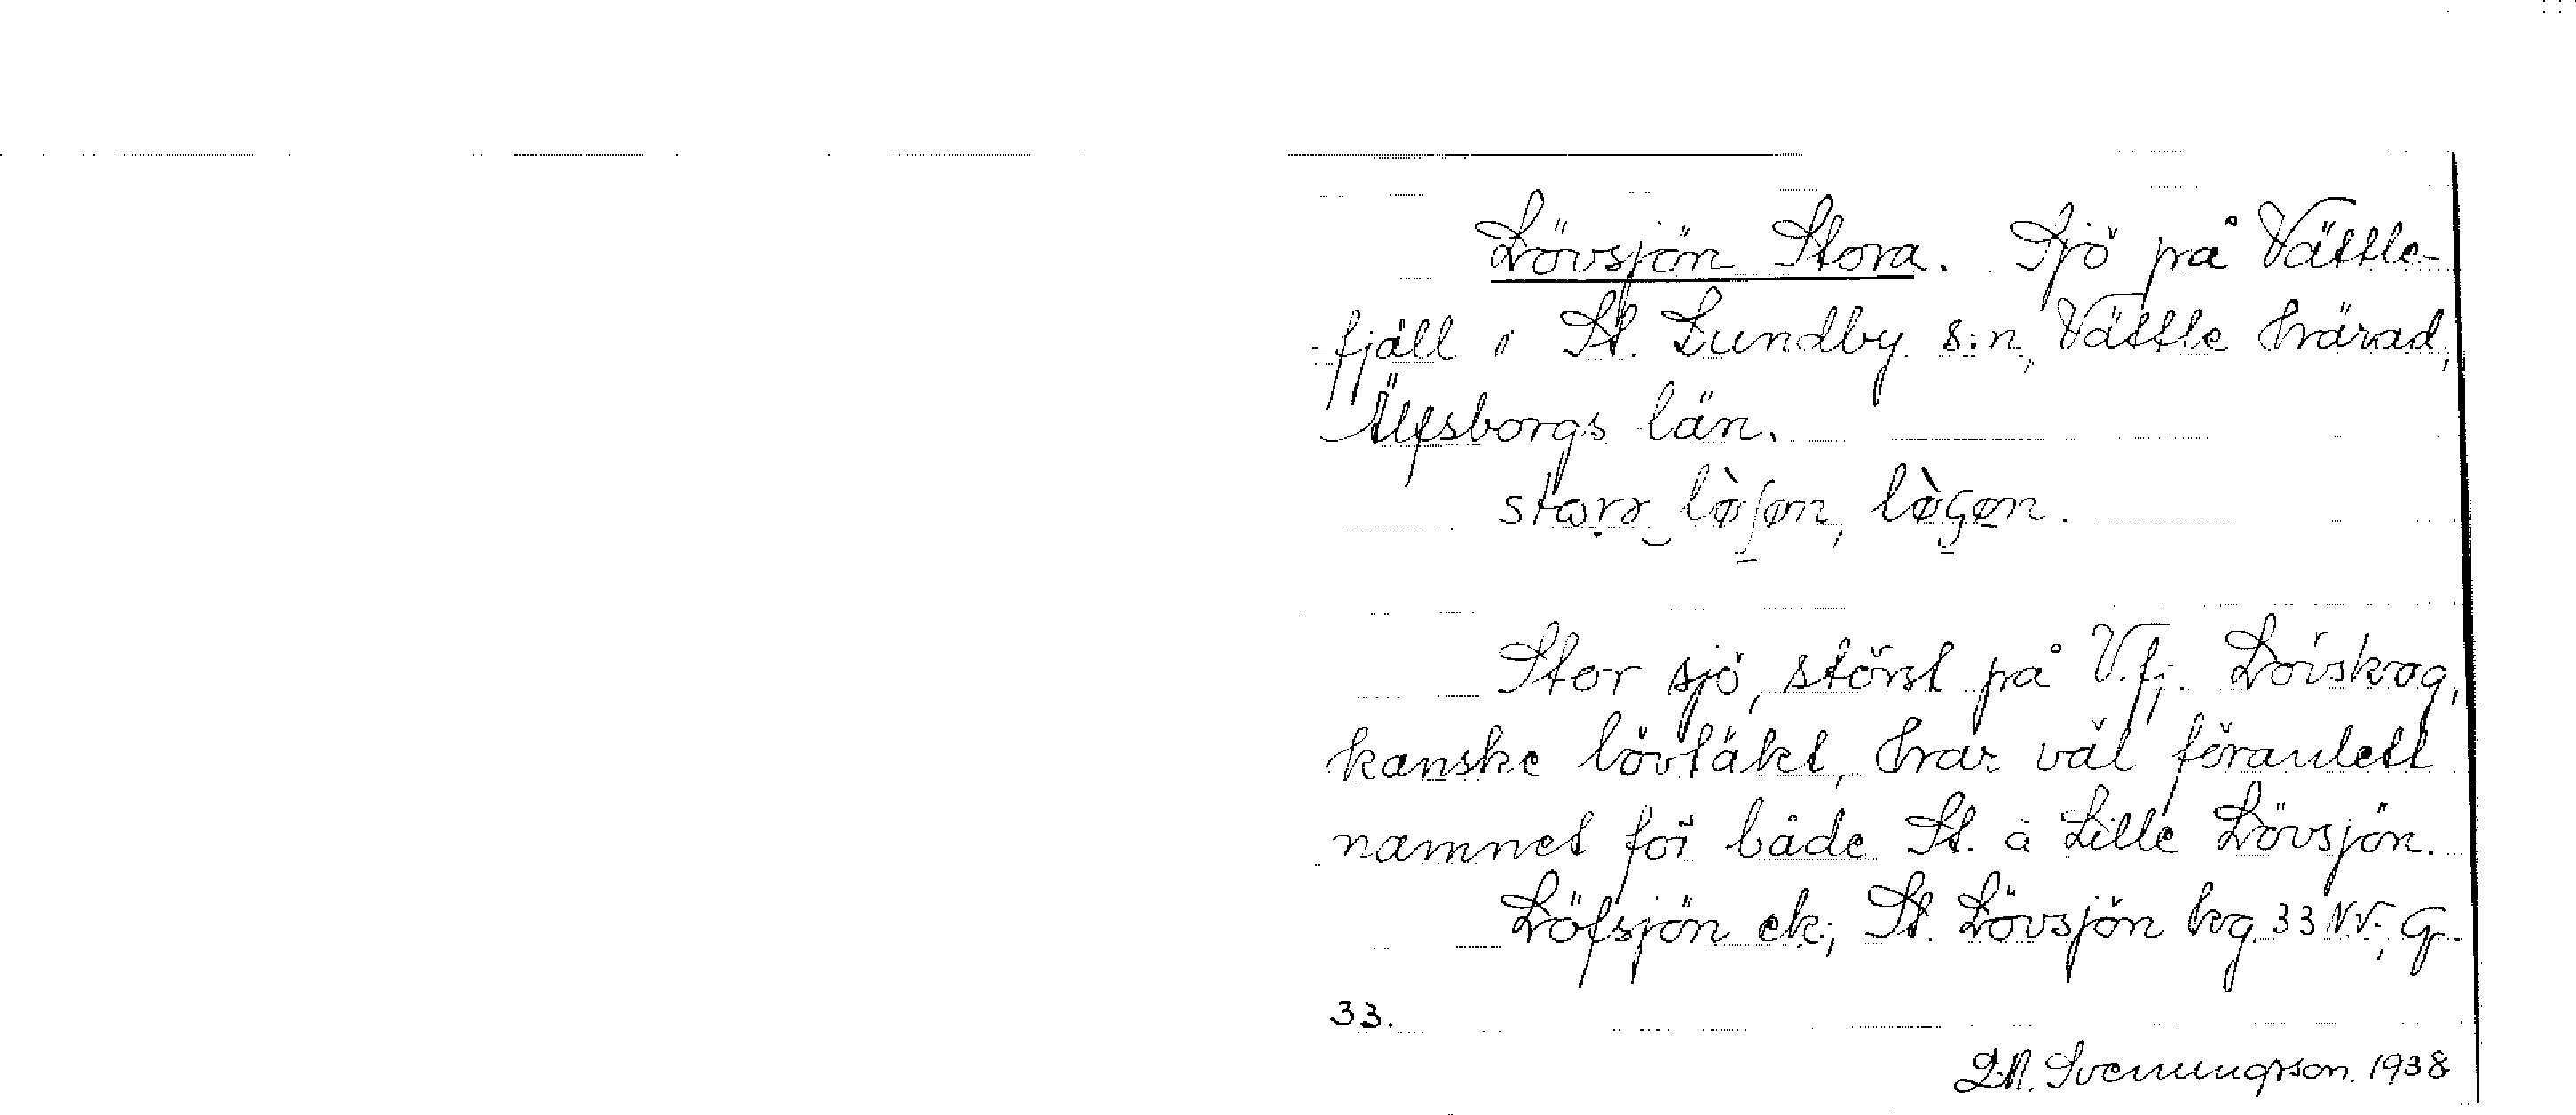 Lövsjön Stora. Sjö på Vättle-
-fjäll i St. Lundby s:n, Vättle härad,
Älfsborgs län.
Stor sjö, störst på V.fj. Lövskog,
kanske lövtäkt, har väl föranlett
namnet för både St. å Lille Lövsjön.
Löfsjön ek; St. Lövsjön hvg 33 NV; G
33.
Svenungsson. 1938